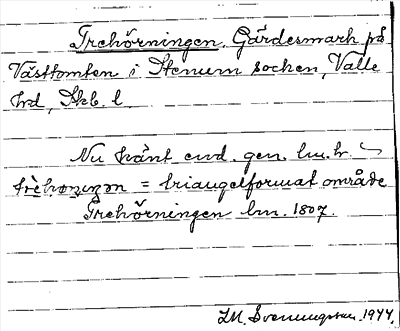 Trehörningen, Gärdesmark på
Västtomten i Stenum socken, Valle
hd, Skb. l.
Nu känt end. gen. lm. h.
= triangelformat område
Trehörningen lm. 1807.
1944.